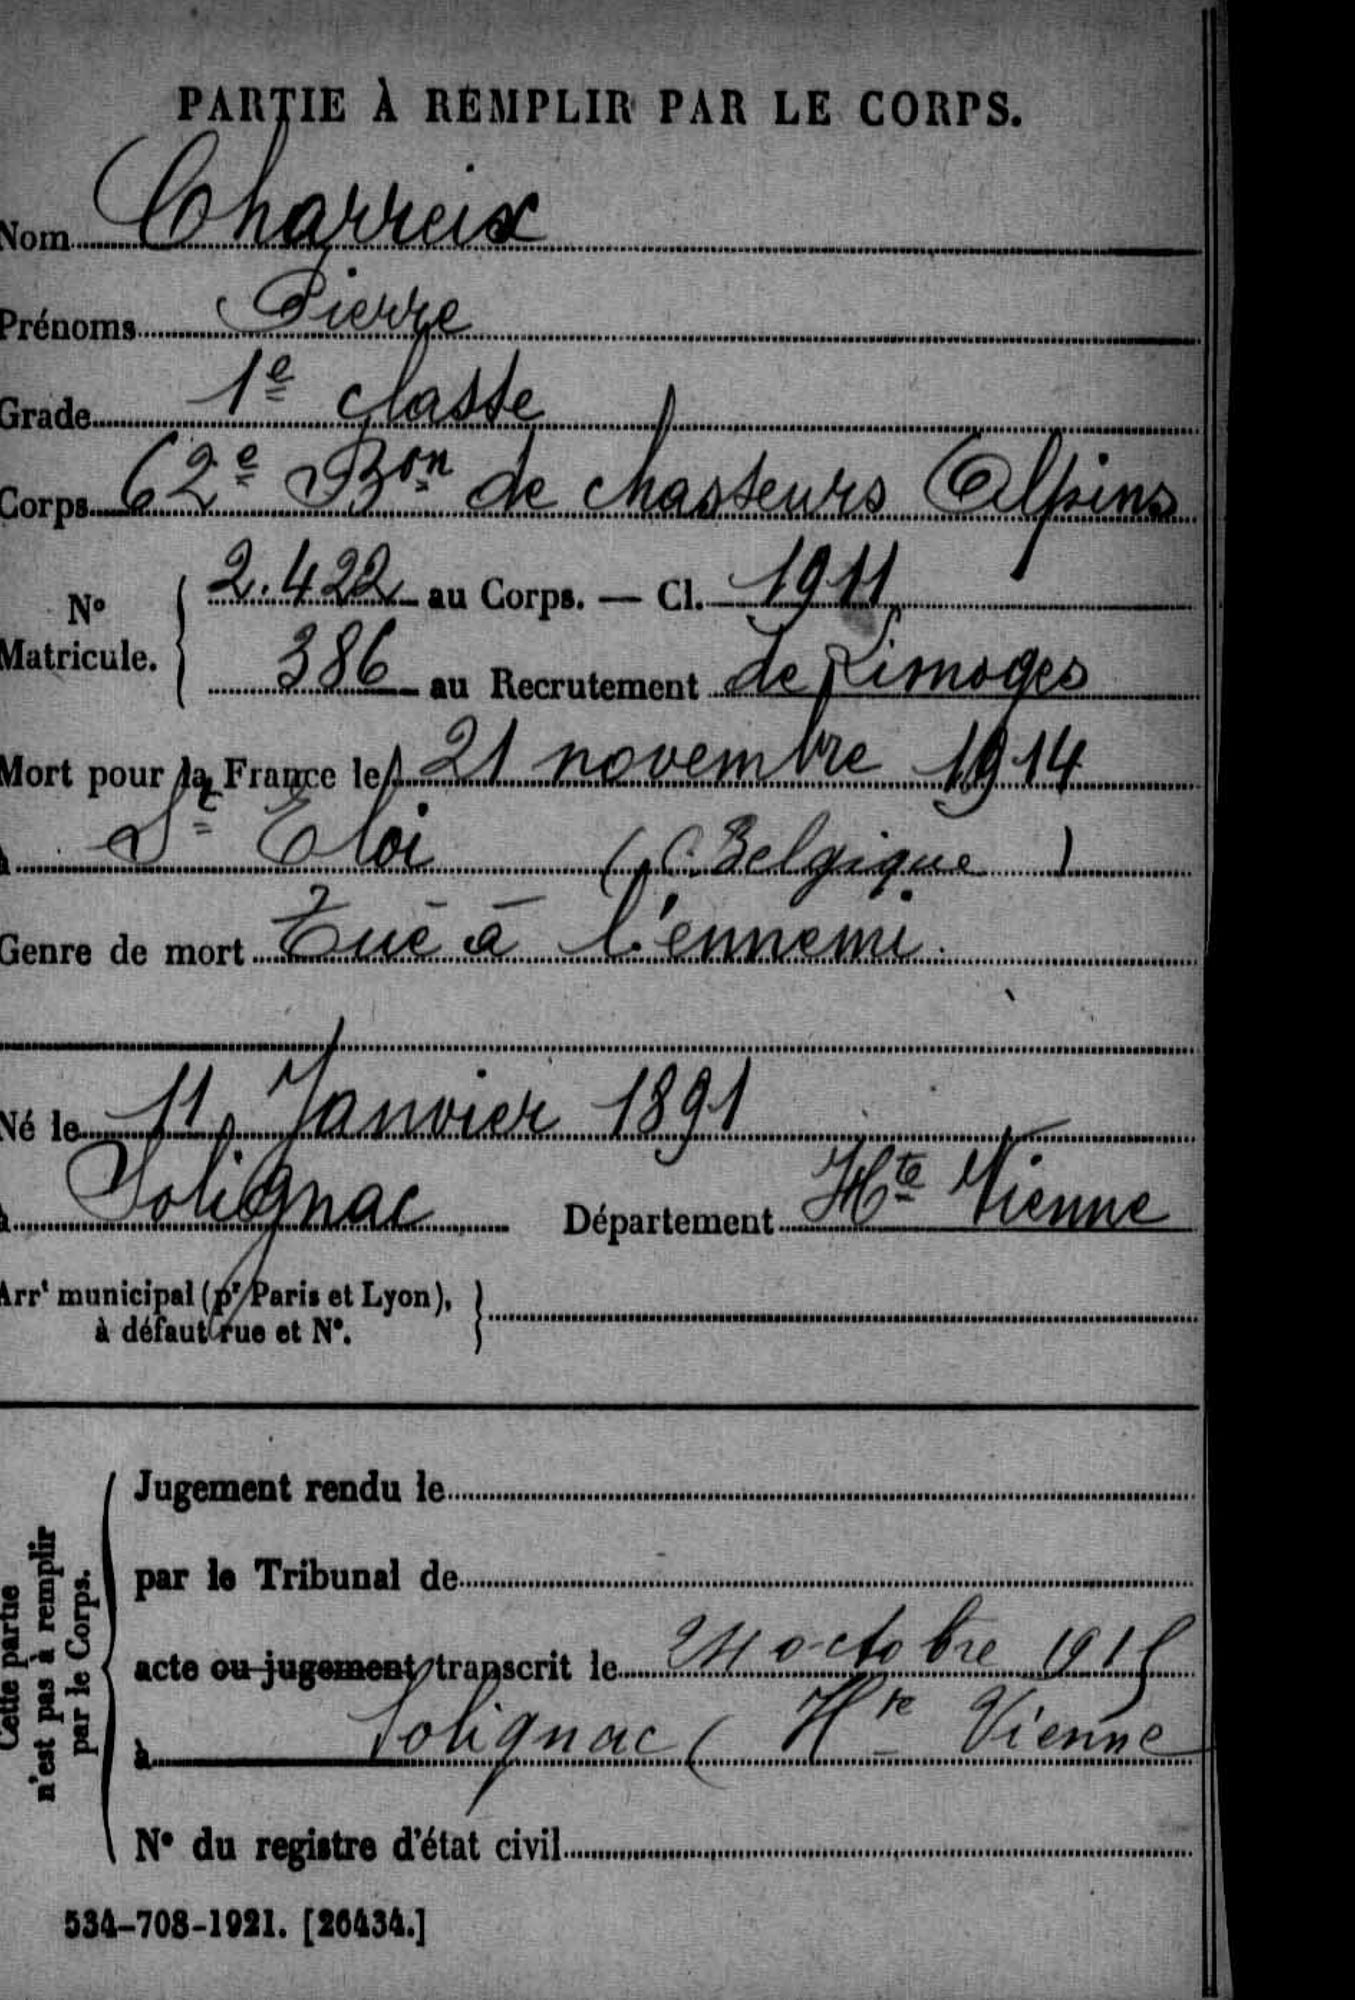 PARTIE À REMPLIR PAR LE CORPS.
Nom Charreix
Prénoms Pierre
Grade 1e classe
Corps 62e Bon de chasseurs Alpins
N° Matricule. 2.422 au Corps. — Cl. 1911
386 au Recrutement de Limoges
Mort pour la France le 21 novembre 1914
à St Eloi (Belgique)
Genre de mort Tué à l'ennemi.
Né le 11 Janvier 1891
à Solignac Département Hte Vienne
Arrt municipal (pr Paris et Lyon),
à défaut rue et N°.
Cette partie
n'est pas à remplir
par le Corps.
Jugement rendu le
par le Tribunal de
acte ou jugement transcrit le octobre 1915
à Solignac (Hte Vienne
N° du registre d'état civil
534-708-1921. [26434.]